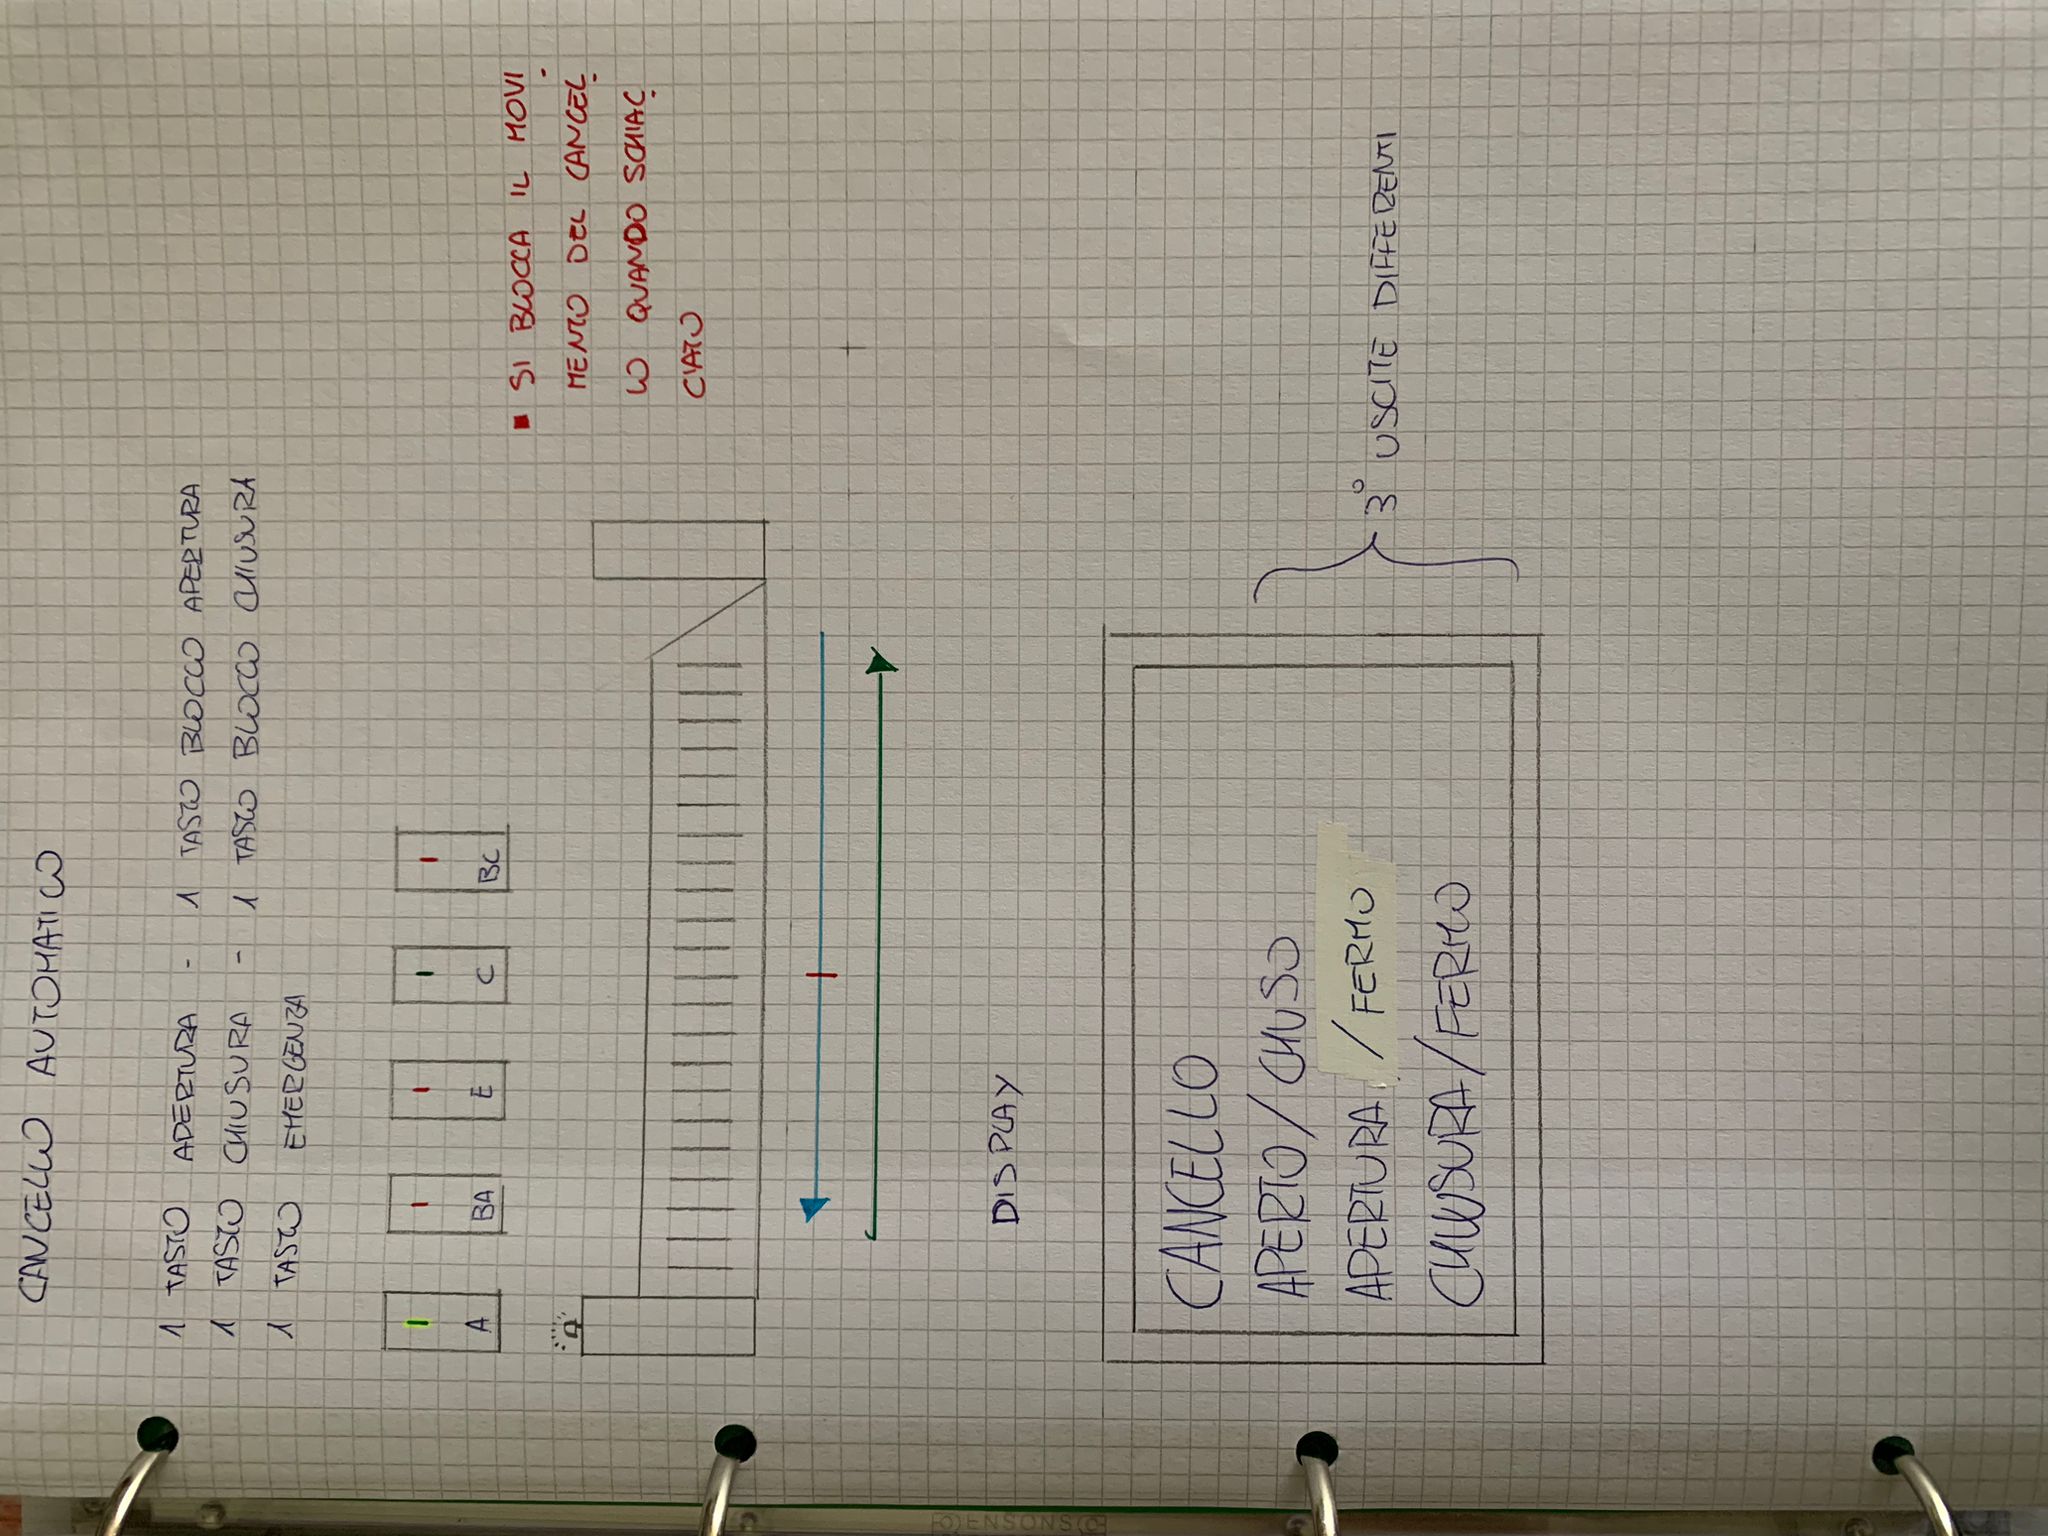 CANCELLO AUTOMATICO
1 TASTO APERTURA - 1 TASTO BLOCCO APERTURA
1 TASTO CHIUSURA - 1 TASTO BLOCCO CHIUSURA
1 TASTO EMERGENZA
A BA E C BC
SI BLOCCA IL MOVI
MENTO DEL CANCEL
LO QUANDO SCHIAC
CIATO
DISPLAY
CANCELLO
APERTO / CHIUSO
APERTURA / FERMO
CHIUSURA / FERMO
3° USCITE DIFFERENTI